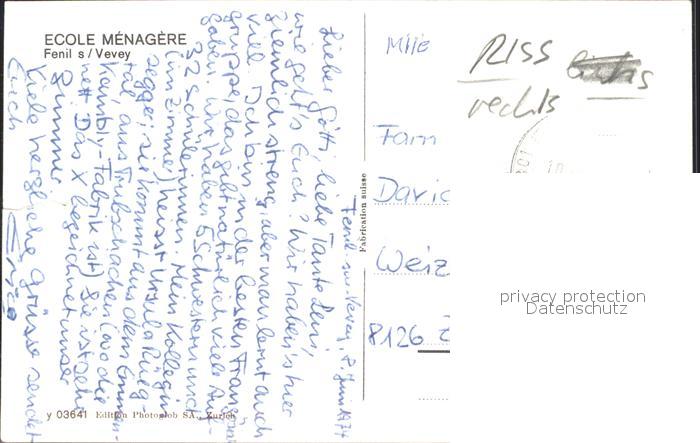 ECOLE MÉNAGÈRE
Fenil s/Vevey
Fenil sur Vevey, 7. Juni 1974
Lieber Götti, liebe Tante Leni,
wie geht's Euch? Wir haben's hier
ziemlich streng, aber man lernt auch
viel. Ich bin in der besten Französisch-
gruppe, das gibt natürlich viele Auf-
gaben. Wir haben 5 Schwestern und
32 Schülerinnen. Mein Kollegin
(im Zimmer) heisst Ursula Rüeg-
segger, sie kommt aus dem Emmen-
tal, aus Trubschachen (wo die
Kambly-Fabrik ist) Sie ist sehr
nett Das X bezeichnet unser
Zimmer
Viele herzliche Grüsse sendet
Euch
y 03641 Edition Photoglob SA., Zürich
Fabrication suisse
Mlle
RISS
rechts
Fam
David
Weiz
8126 Z
privacy protection
Datenschutz